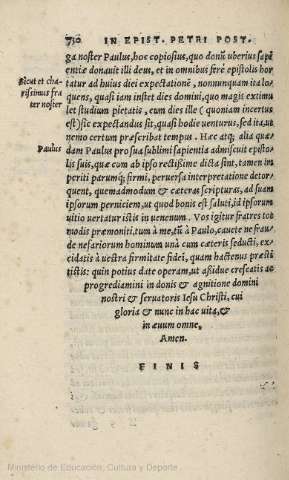 730 IN EPIST. PETRI POST.
ga noster Paulus, hoc copiosius, quo donũ uberius sapi
entiæ donauit illi deus, et in omnibus ferè epistolis hor
Sicut et cha-
tatur ad huius diei expectationẽ, nonnunquam ita lo-
rissimus fra
quens, quasi iam instet dies domini, quo magis excimu
ter noster
let studium pietatis, cum dies ille (quoniam incertus
est) sic expectandus sit, quasi hodie uenturus, sed ita, ut
nemo certum præscribat tempus. Hæc atq; alia quæ
Paulus
dam Paulus pro sua sublimi sapientia admiscuit episto
lis suis, quæ cum ab ipso rectissime dicta sint, tamen im
periti parumq; firmi, peruersa interpretatione detor-
quent, quemadmodum & cæteras scripturas, ad suam
ipsorum perniciem, ut quod bonis est saluti, id ipsorum
uitio uertatur istis in uenenum. Vos igitur fratres tot
modis præmoniti, tum à me, tũ à Paulo, cauete ne frau
de nefariorum hominum unà cum cæteris seducti, ex-
cidatis à uestra firmitate fidei, quam hactenus præsti
tistis: quin potius date operam, ut aßidue crescatis ac
progrediamini in donis & agnitione domini
nostri & seruatoris Iesu Christi, cui
gloria & nunc in hac uita, &
in æuum omne,
Amen.
FINIS
Ministerio de Educación, Cultura y Deporte